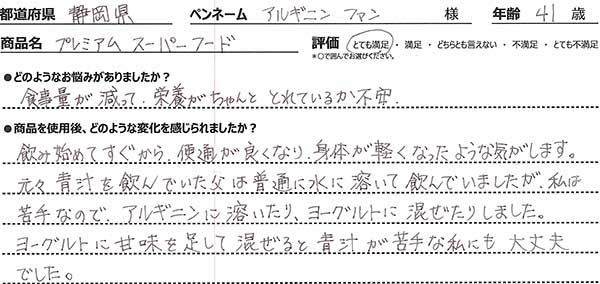 都道府県 静岡県 ペンネーム アルギニン ファン 様 年齢 41 歳
商品名 プレミアム スーパーフード 評価 とても満足・満足・どちらとも言えない・不満足・とても不満足
*○で囲んでお選びください。
●どのようなお悩みがありましたか?
食事量が減って、栄養がちゃんと とれているか不安.
●商品を使用後、どのような変化を感じられましたか?
飲み始めてすぐから、便通が良くなり、身体が軽くなったような気がします。
元々青汁を飲んでいた父は普通に水に溶いて飲んでいましたが、私は
苦手なので、アルギニンに溶いたり、ヨーグルトに混ぜたりしました。
ヨーグルトに甘味を足して混ぜると青汁が苦手な私にも大丈夫
でした。